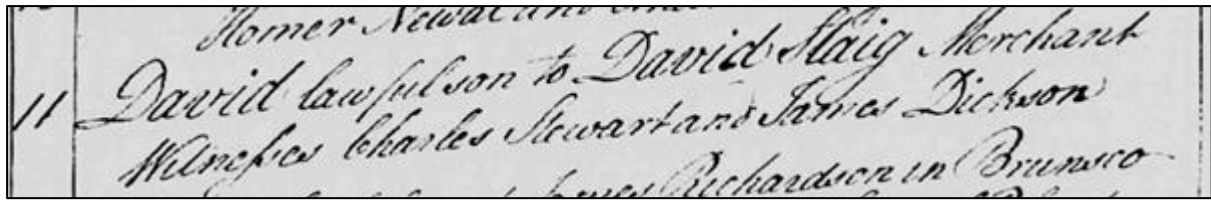 Homer Newal and
11 David lawful son to David Staig Merchant
Witnesses Charles Stewart and James Dickson
James Richardson in Brunsco